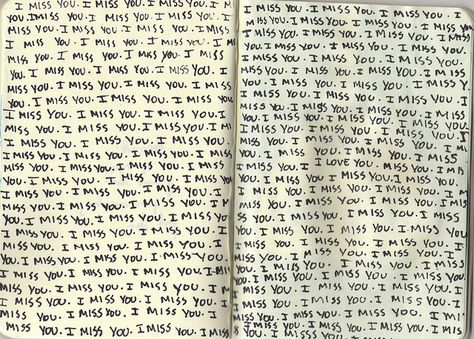 I MISS YOU. I MISS YOU. I MISS YOU. I M
YOU. I MISS YOU. I MISS YOU. I MISS YOU.
MISS YOU. I MISS YOU. I MISS YOU. I MISS
I MISS YOU. I MISS YOU. I MISS YOU. I
MISS YOU. I MISS YOU. I MISS YOU. I MI
YOU. I MISS YOU. I MISS YOU. I MISS YOU. I
I MISS YOU. I MISS YOU. I MISS YOU. I
YOU. I MISS YOU. I MISS YOU. I MISS YOU.
I MISS YOU. I MISS YOU. I MISS YOU. I M
MISS YOU. I MISS YOU. I MISS YOU. I MI
YOU. I MISS YOU. I MISS YOU. I MISS YOU.
I MISS YOU. I MISS YOU. I MISS YOU. I MISS
YOU. I MISS YOU. I MISS YOU. I MISS YOU.
YOU. I MISS YOU. I MISS YOU. I MISS YOU.
I MISS YOU. I MISS YOU. I MISS YOU. I
MISS YOU. I MISS YOU. I MISS YOU. I MISS
YOU. I MISS YOU. I MISS YOU. I MISS YOU
I MISS YOU. I MISS YOU. I MISS YOU. I
MISS YOU. I MISS YOU. I MISS YOU. I MISS
YOU. I MISS YOU. I MISS YOU. I MISS YOU.
I MISS YOU. I MISS YOU. I MISS YOU. I MISS
I MISS YOU. I MISS YOU. I MISS YOU. I
I MISS YOU. I MISS YOU. I MISS YOU. I
MISS YOU. I MISS YOU. I MISS YOU. I MISS
MISS YOU. I MISS YOU. I MISS YOU. I MISS
I MISS YOU. I MISS YOU. I MISS YOU. I
MISS YOU. I MISS YOU. I MISS YOU. I MISS
YOU. I MISS YOU. I MISS YOU. I MISS
YOU. I MISS YOU. I MISS YOU. I MISS YOU.
I MISS YOU. I MISS YOU. I MISS YOU.
MISS YOU. I MISS YOU. I MISS YOU. I MISS
YOU. I MISS YOU. I MISS YOU. I MISS YOU.
I MISS YOU. I MISS YOU. I MISS YOU. I
I MISS YOU. I MISS YOU. I MISS YOU. I MI
YOU. I MISS YOU. I MISS YOU. I MISS YOU
I MISS YOU. I MISS YOU. I MISS YOU.
MISS YOU. I MISS YOU. I MISS YOU. I
YOU. I MISS YOU. I MISS YOU. I MISS
MISS YOU. I MISS YOU. I LOVE YOU. MISS YOU. I M
MISS YOU. I MISS YOU. I MISS YOU. I MISS YOU.
I MISS YOU. I MISS YOU. I MISS YOU. I M
MISS YOU. I MISS YOU. I MISS YOU. I MISS
SS YOU. I MISS YOU. I MISS YOU. I MISS
YOU. I MISS YOU. I MISS YOU. I MISS YOU.
I MISS YOU. I MISS YOU. I MISS YOU. I
MISS YOU. I MISS YOU. I MISS YOU. I MISS
I MISS YOU. I MISS YOU. I MISS YOU.
I MISS YOU. I MISS YOU. I MISS YOU. I
MISS YOU. I MISS YOU. I MISS YOU. I MISS
YOU. I MISS YOU. I MISS YOU. I MISS YOU.
I MISS YOU. I MISS YOU. I MISS YOU. I
YOU. I MISS YOU. I MISS YOU. I MI
I MISS YOU. I MISS YOU. I MISS YOU.
MISS YOU. I MISS YOU. I MISS YOU. I MISS